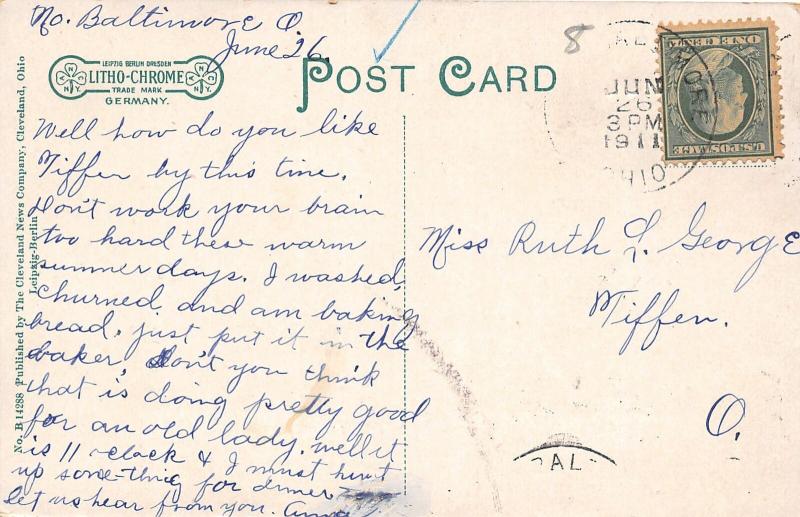 No. Baltimore O.
June 26.
LEIPZIG BERLIN DRESDEN
LITHO-CHROME
TRADE MARK
GERMANY.
POST CARD
8
JUN
26
3 PM
1911
OHIO
U.S. POSTAGE
ONE CENT
Well how do you like
Tiffen by this time.
Don't work your brain
too hard these warm
summer days. I washed,
churned and am baking
bread, just put it in the
baker Don't you think
that is doing pretty good
for an old lady. well it
is 11 oclock & I must hunt
up some-thing for dinner
let us hear from you. Anna
Miss Ruth L. George
Tiffen.
O.
No. B 14288 Published by The Cleveland News Company, Cleveland, Ohio
Leipzig-Berlin